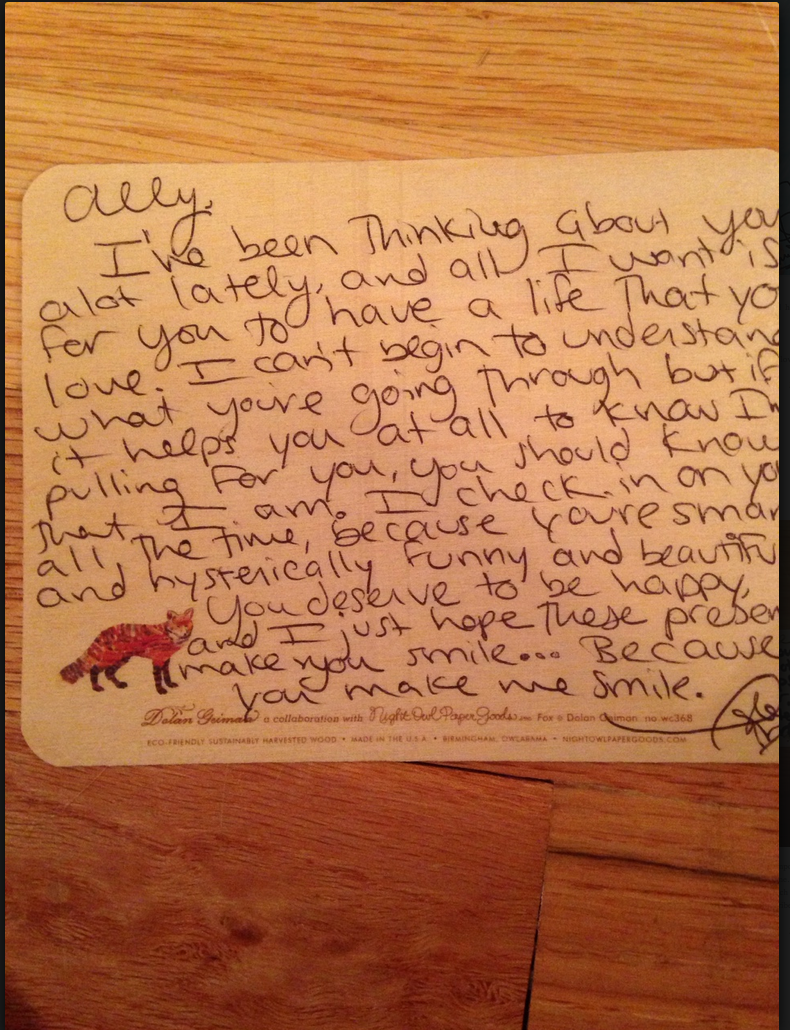 Ally,
I've been Thinking about you
alot lately, and all I want is
for you to have a life That yo
love. I can't begin to understan
what you're going through but if
it helps you at all to know I'm
pulling for you, you should know
that I am. I check in on yo
all The time, because you're smar
and hysterically funny and beautifu
You deserve to be happy,
and I just hope These presen
make you smile... Because
you make me smile.
Dolan Geiman a collaboration with Night Owl Paper Goods Fox © Dolan Geiman no.wc368
ECO-FRIENDLY SUSTAINABLY HARVESTED WOOD • MADE IN THE U.S.A • BIRMINGHAM, OWLABAMA • NIGHTOWLPAPERGOODS.COM